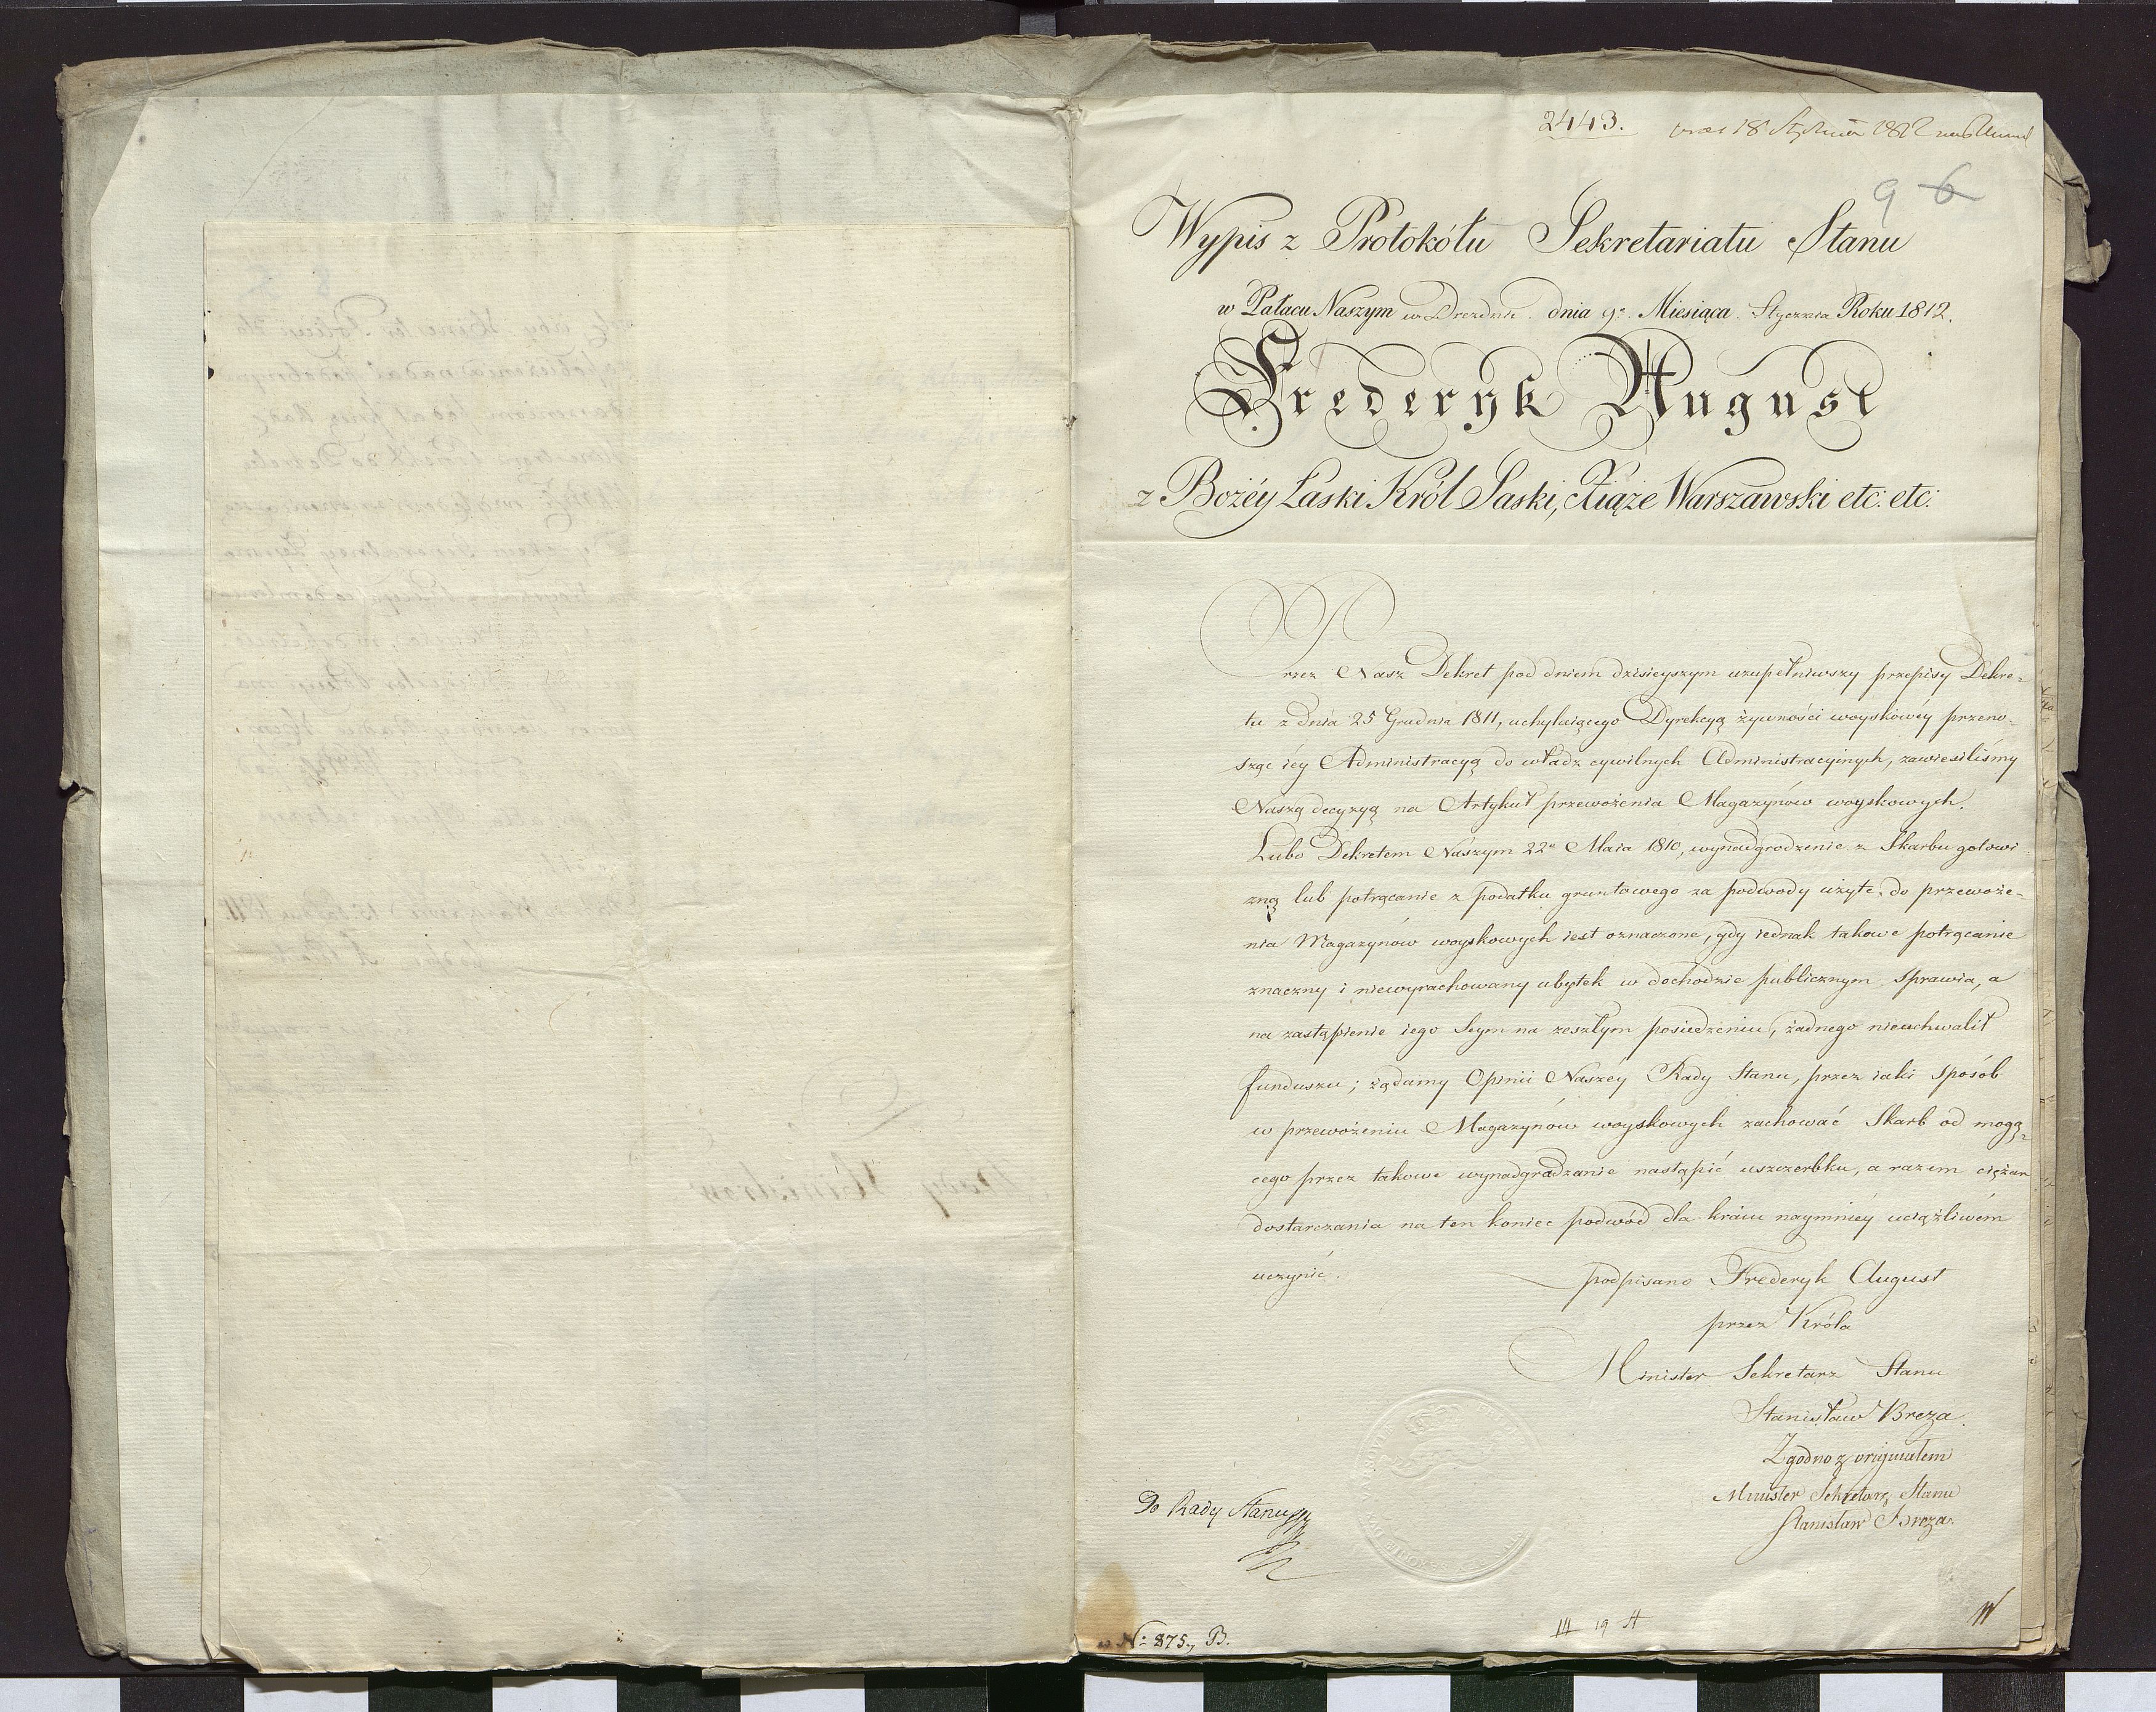 2443.
18 Stycznia 1812
9 6
Wypis z Protokółu Sekretariatu Stanu
w Pałacu Naszym w Dreznie dnia 9º Miesiąca Stycznia Roku 1812.
Frederyk August
z Bożéy Łaski Król Saski, Xiąże Warszawski etc: etc:
Przez Nasz Dekret pod dniem dzisieyszym uzupełniwszy przepisy Dekre-
tu z dnia 25 Grudnia 1811, uchylaiącego Dyrekcyą żywności woyskowéy przeno-
sząc iéy Administracyą do władz cywilnych Administracyinych, zawiesiliśmy
Naszą decyzyą na Artykuł przewożenia Magazynów woyskowych.
Lubo Dekretem Naszym 22º Maia 1810, wynadgrodzenie z Skarbu gotowi-
zną lub potrącanie z podatku gruntowego za podwody użyte do przewoże-
nia Magazynów woyskowych iest oznaczone, gdy iednak takowe potrącanie
znaczny i niewyrachowany ubytek w dochodzie publicznym sprawia, a
na zastąpienie iego Seym na zeszłym posiedzeniu, żadnego nieuchwalił
funduszu; żądamy Opinii Naszéy Rady Stanu, przez iaki sposób
w przewożeniu Magazynów woyskowych zachować Skarb od mogą-
cego przez takowe wynadgradzanie nastąpić uszczerbku, a razem ciężar
dostarczania na ten koniec podwód dla kraiu naymniéy uciążliwém
uczynić.
podpisano Frederyk August
przez Króla
Minister Sekretarz Stanu
Stanisław Breza.
Zgodno z oryginałem
Minister Sekretarz Stanu
Stanisław Breza.
Do Rady Stanu
w Nº 875, B.